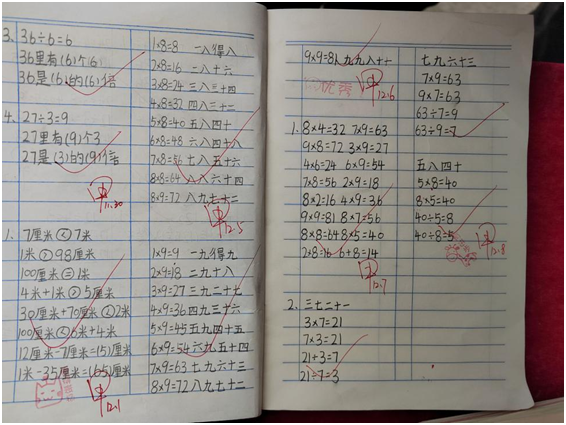 3. 36÷6=6
36里有(6)个6
36是(6)的(6)倍
4. 27÷3=9
27里有(9)个3
27是(3)的(9)倍
11.30
1. 7厘米<7米
1米>98厘米
100厘米=1米
4米+1米>5厘米
30厘米+70厘米<2米
100厘米<6米+4米
12厘米-7厘米=(5)厘米
1米-35厘米=(65)厘米
12.1
1×8=8 一八得八
2×8=16 二八十六
3×8=24 三八二十四
4×8=32 四八三十二
5×8=40 五八四十
6×8=48 六八四十八
7×8=56 七八五十六
8×8=64 八八六十四
8×9=72 八九七十二
12.5
1×9=9 一九得九
2×9=18 二九十八
3×9=27 三九二十七
4×9=36 四九三十六
5×9=45 五九四十五
6×9=54 六九五十四
7×9=63 七九六十三
8×9=72 八九七十二
9×9=81 九九八十一
优秀
12.6
1. 8×4=32 7×9=63
9×8=72 3×9=27
4×6=24 6×9=54
7×8=56 2×9=18
8×2=16 4×9=36
9×9=81 8×7=56
8×8=64 8×5=40
2×8=16 6+8=14
12.7
2. 三七二十一
3×7=21
7×3=21
21÷3=7
21÷7=3
七九六十三
7×9=63
9×7=63
63÷7=9
63÷9=7
五八四十
5×8=40
8×5=40
40÷5=8
40÷8=5
12.8